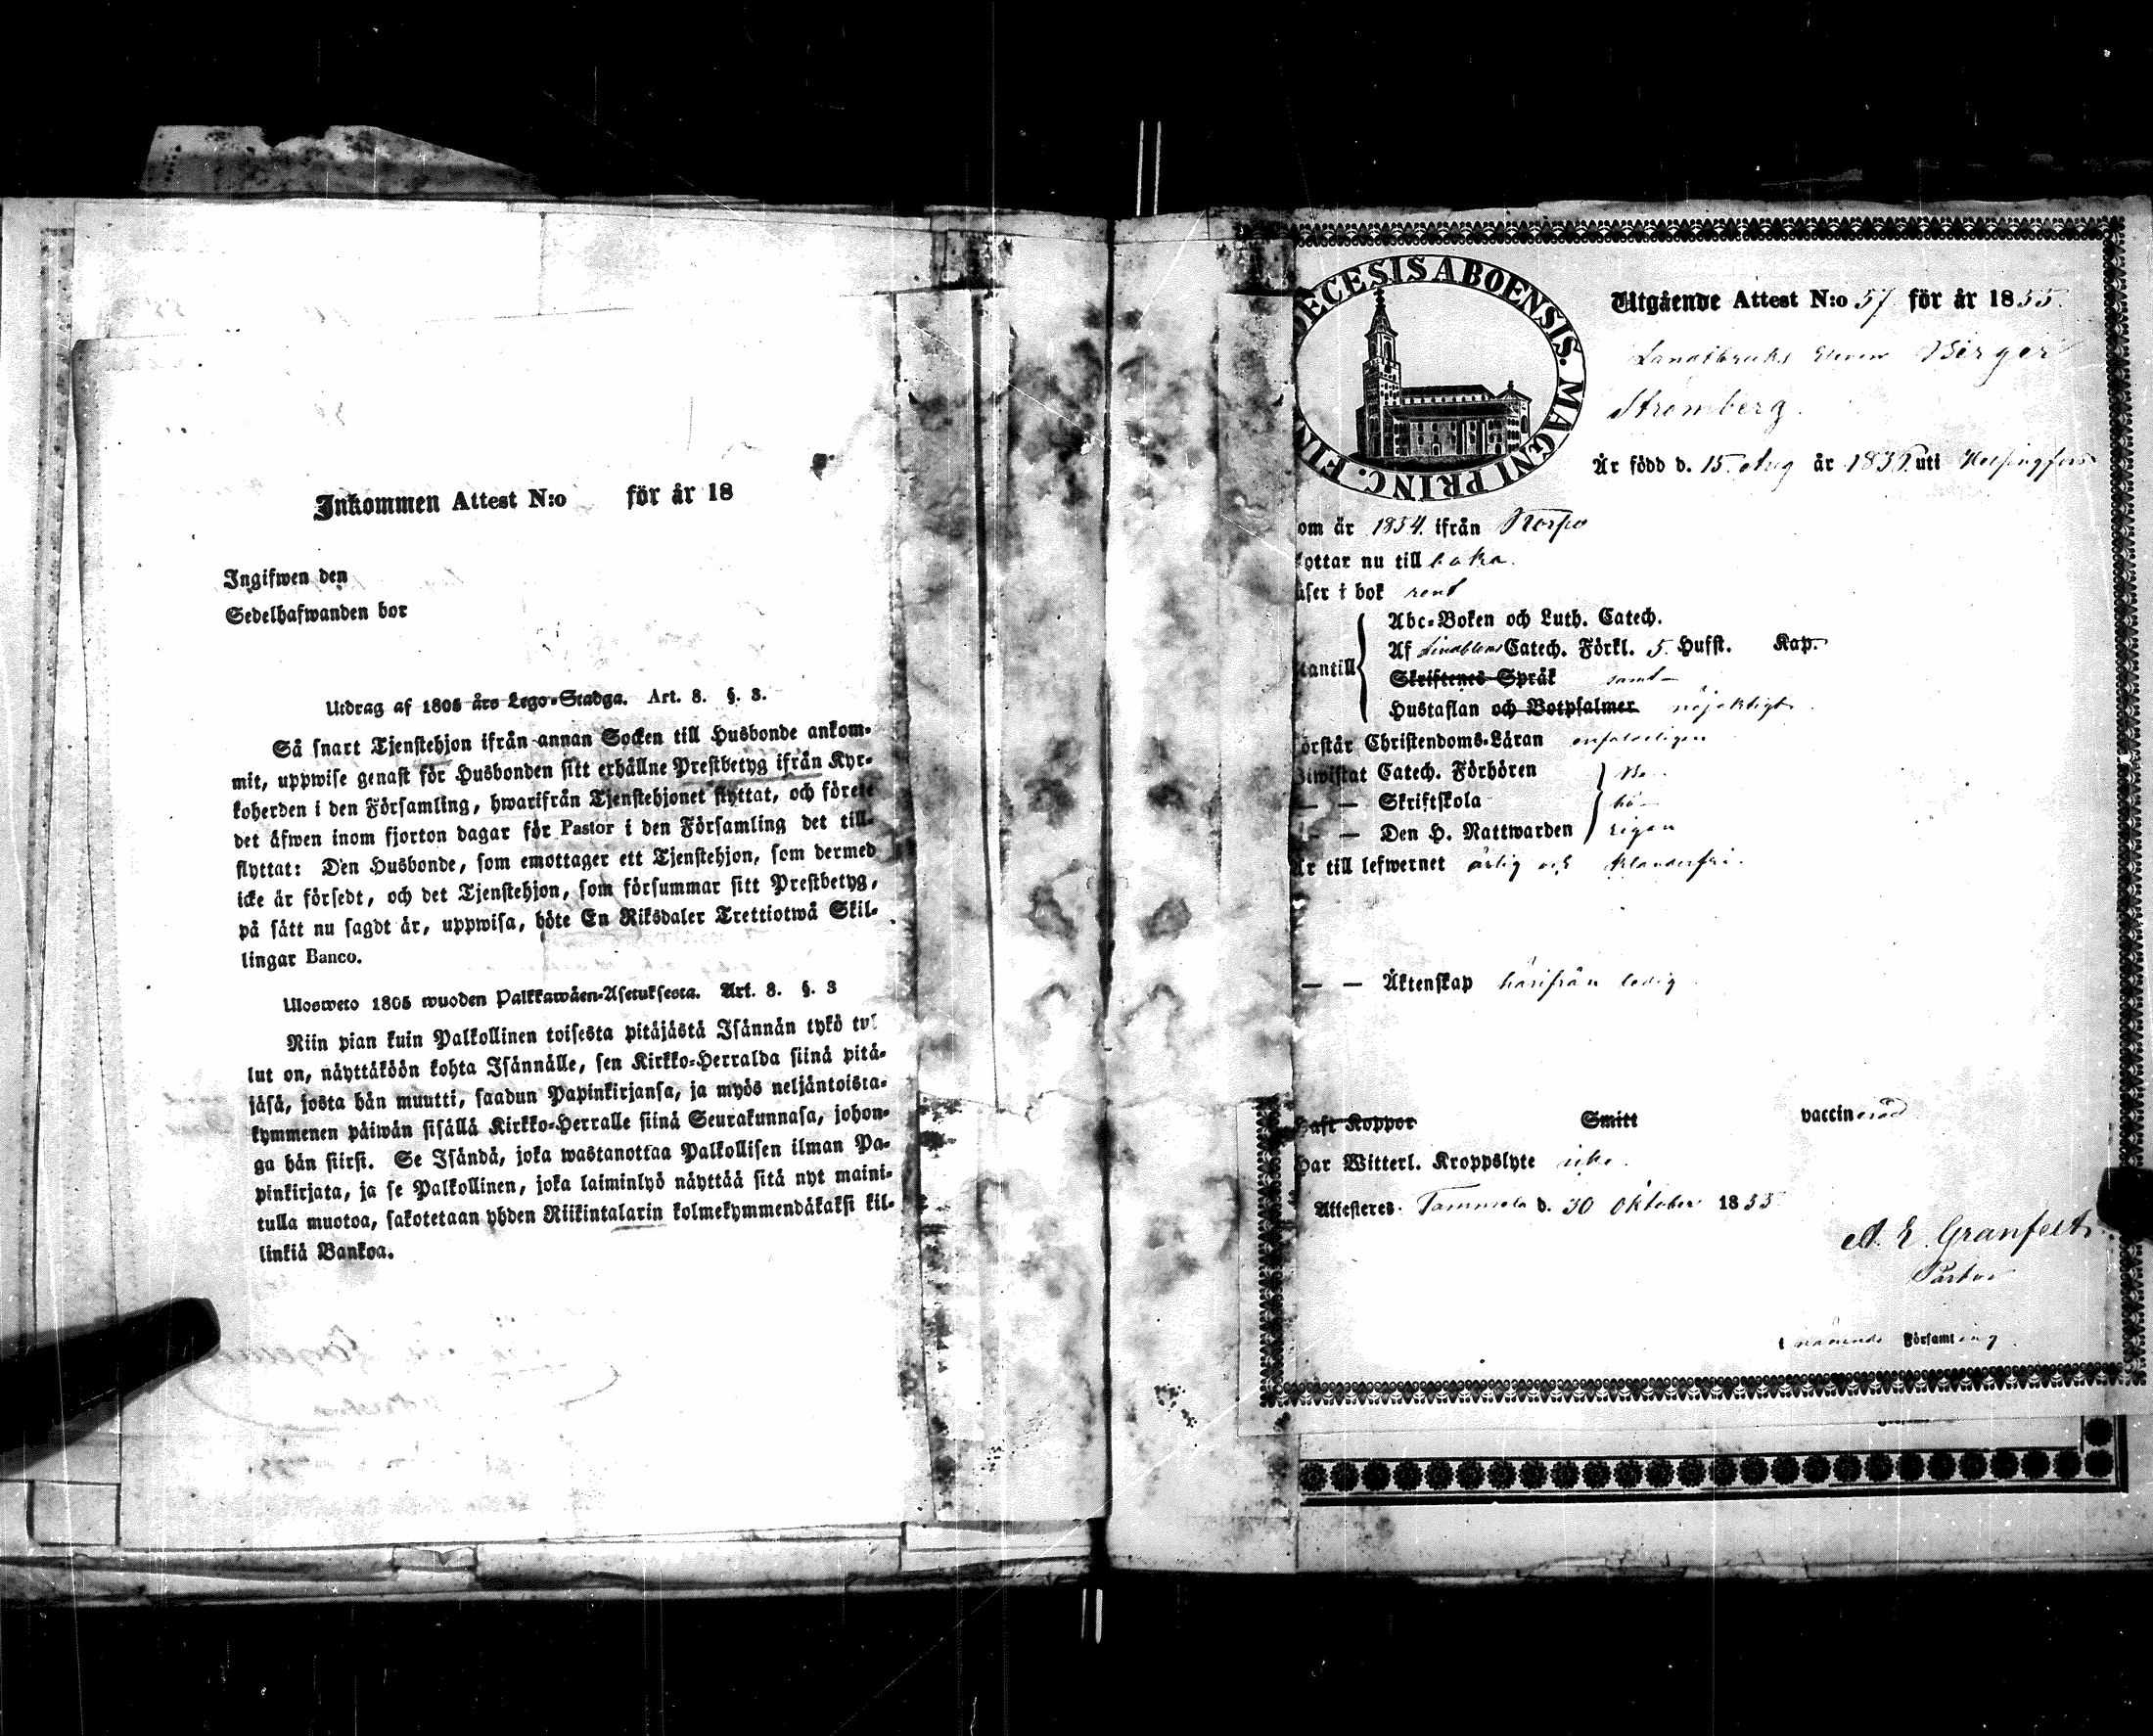 Inkommen Attest N:o för år 18
Ingifwen den
Sedelhafwanden bor
Utdrag af 1805 års Lego-Stadga. Art. 8. §. 3.
Så snart Tjenstehjon ifrån annan Socken till Husbonde ankom-
mit, uppwise genast för Husbonden sitt erhållne Prestbetyg ifrån Kyr-
koherden i den Församling, hwarifrån Tjenstehjonet flyttat, och förete
det äfwen inom fjorton dagar för Pastor i den Församling det till-
flyttat: Den Husbonde, som emottager ett Tjenstehjon, som dermed
icke är försedt, och det Tjenstehjon, som försummar sitt Prestbetyg,
på sätt nu sagdt är, uppwisa, böte En Riksdaler Trettiotwå Skil-
lingar Banco.
Ulosweto 1805 wuoden Palkkawäen-Asetuksesta. Art. 8. §. 3
Niin pian kuin Palkollinen toisesta pitäjästä Isännän tykö tul
lut on, näyttäköön kohta Isännälle, sen Kirkko-Herralda siinä pitä-
jäsä, josta hän muutti, saadun Papinkirjansa, ja myös neljäntoista-
kymmenen päiwän sisällä Kirkko-Herralle siinä Seurakunnasa, johon-
ga hän siirsi. Se Isändä, joka wastanottaa Palkollisen ilman Pa-
pinkirjata, ja se Palkollinen, joka laiminlyö näyttää sitä nyt maini-
tulla muotoa, sakotetaan yhden Riikintalarin kolmekymmendäkaksi kil-
linkiä Bankoa.
ECESIS ABOENSIS. MAGNI PRINC. FIN
Utgående Attest N:o 57 för år 1855.
Landtbruks Eleven Birger
Strömberg.
Är född d. 15 Aug år uti Helsingfors
om år 1854. ifrån Korpo
yttar nu till baka.
äser i bok rent
Abc-Boken och Luth. Catech.
Af Lindbloms Catech. Förkl. 5. Hufst. Kap.
tantill Skriftenes Språk samt
Hustaflan och Botpsalmer nöjaktigt.
örstår Christendoms-Läran enfaldeligen
iwistat Catech. Förhören Be-
— — Skriftskola hö-
— — Den H. Nattwarden rigen
Är till lefwernet ärlig och klanderfri.
— — Äktenskap härifrån ledig
aft Koppor Smitt vaccinerad
Har Witterl. Kroppslyte icke.
Attesteres. Tammela d. 30 Oktober 1855
A. E. Granfelt.
Pastor
i nämnde Församling.